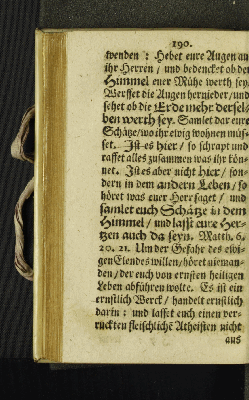 190.
wenden : Hebet eure Augen an
ihr Herren / und bedencket ob der
Himmel eurer Mühe werth sey.
Werffet die Augen hernieder / und
sehet ob die Erde mehr dersel-
ben werth sey. Samlet dar eure
Schätze / wo ihr ewig wohnen müs-
set. Ist es hier / so schrapt und
raffet alles zusammen was ihr kön-
net. Ist es aber nicht hier / son-
dern in dem andern Leben / so
höret was euer Herr saget / und
samlet euch Schätze in dem
Himmel / und lasst eure Her-
tzen auch da seyn. Matth. 6.
20. 21. Um der Gefahr des ewi-
gen Elendes willen / höret nieman-
den / der euch von ernsten heiligen
Leben abführen wolte. Es ist ein
ernstlich Werck / handelt ernstlich
darin : und lasset euch einen ver-
ruckten fleischliche Atheisten nicht
aus